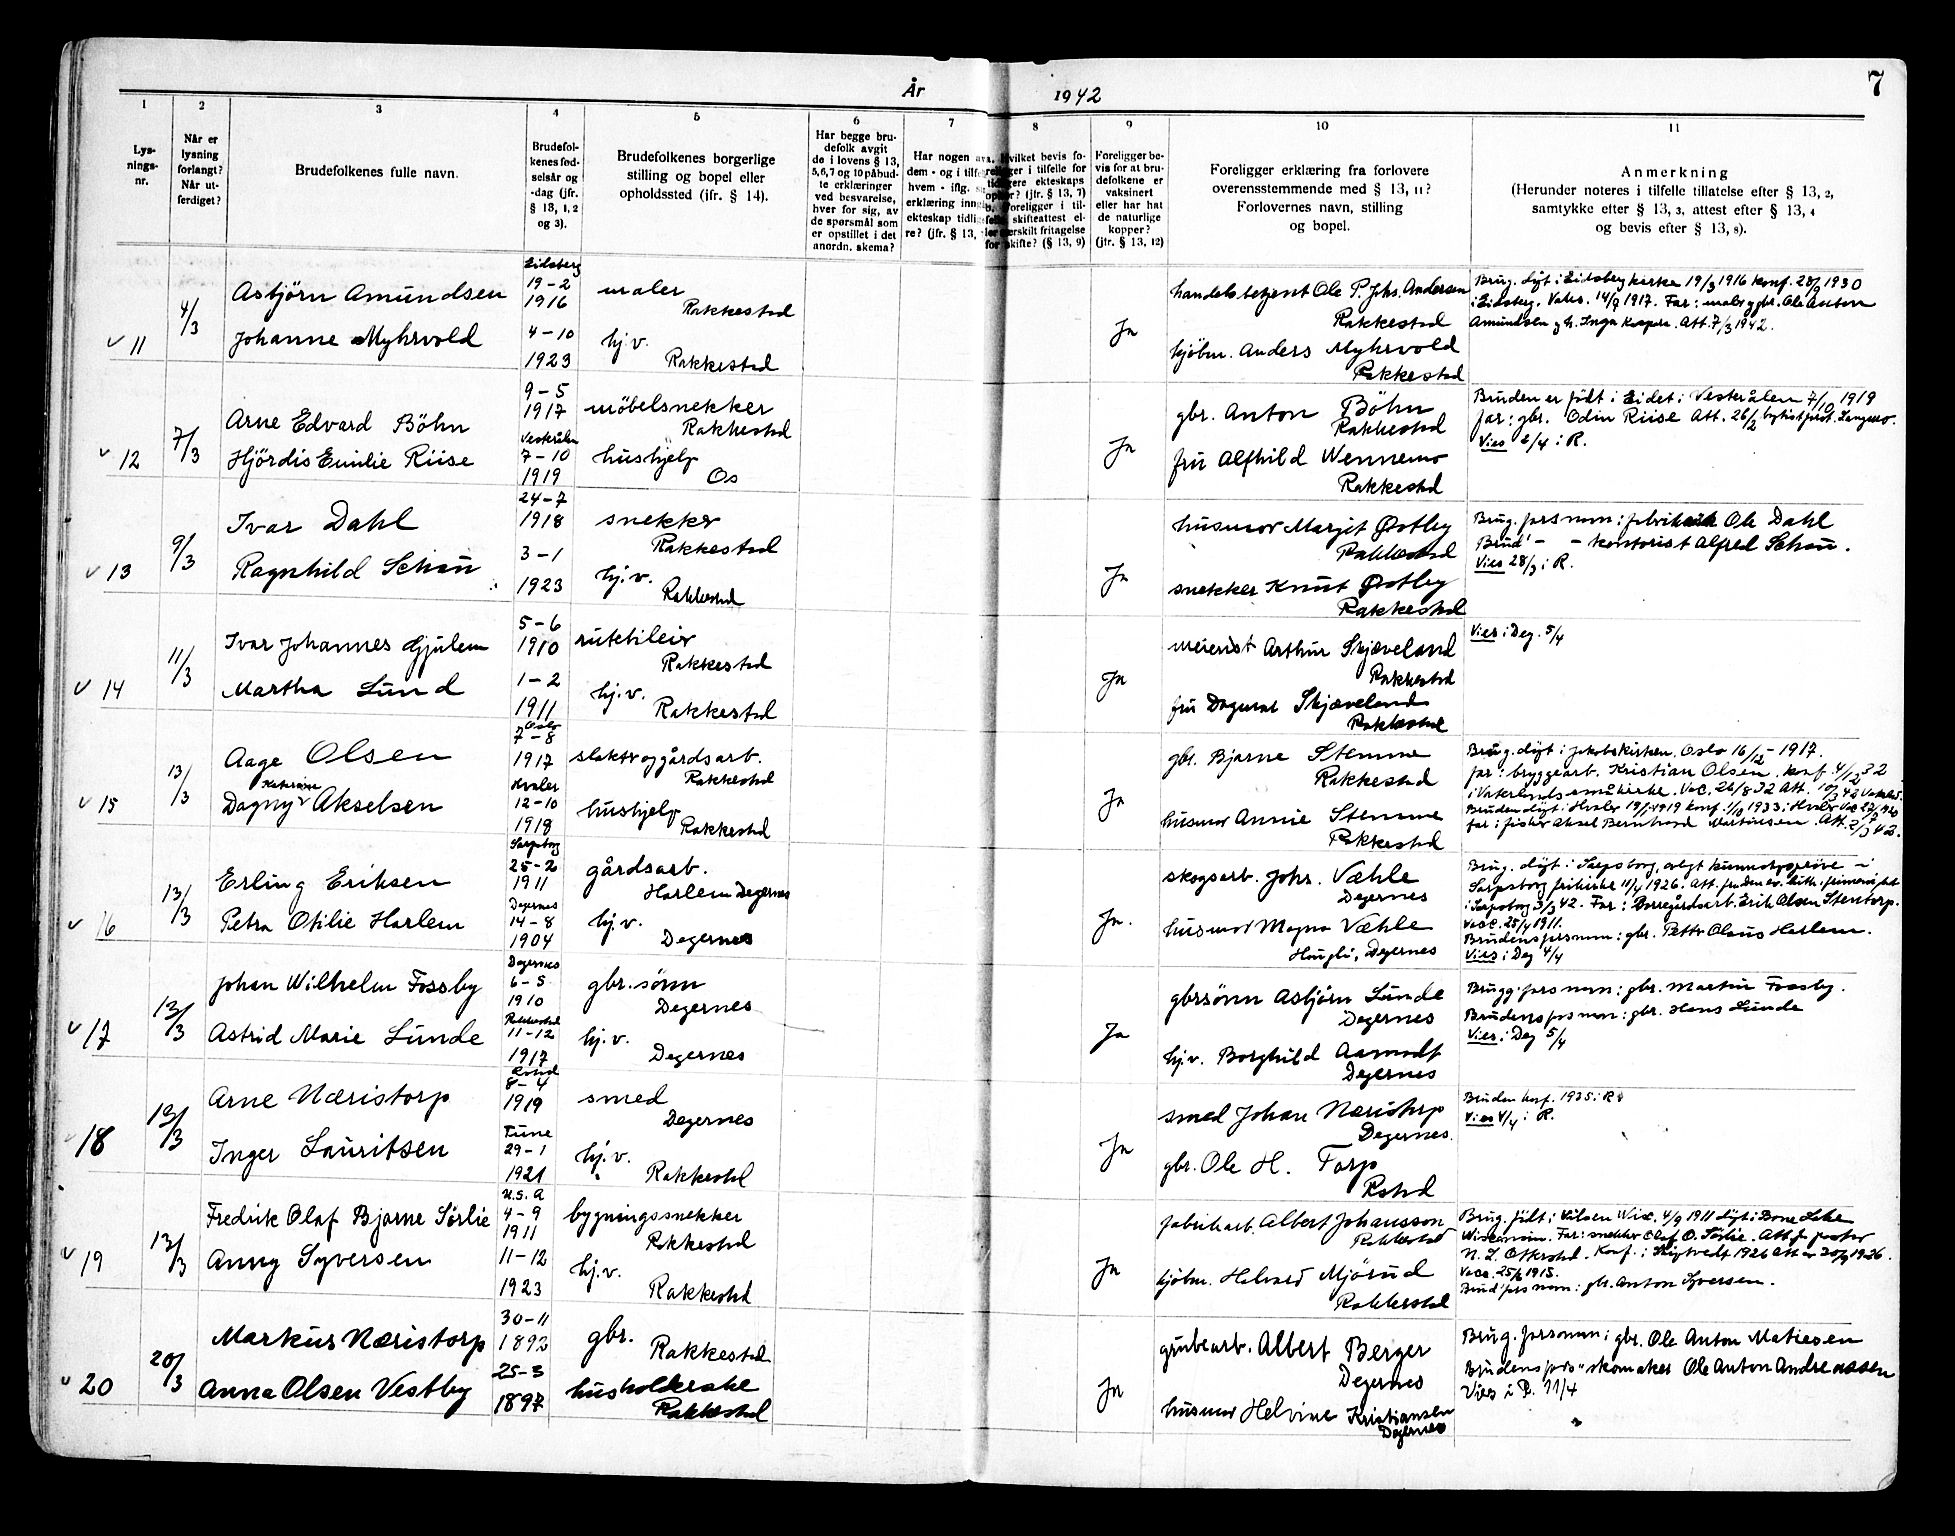 År 1942
7
1
2
3
4
5
6
7
8
9
10
11
Lys-
nings-
nr.
Når er
lysning
forlangt?
Når ut-
ferdiget?
Brudefolkenes fulle navn.
Brudefol-
kenes fød-
selsår og
-dag (jfr.
§ 13, 1, 2
og 3).
Brudefolkenes borgerlige
stilling og bopel eller
opholdssted (jfr. § 14).
Har begge bru-
defolk avgit
de i lovens § 13,
5, 6, 7 og 10 påbud-
te erklæringer
ved besvarelse,
hver for sig, av
de spørsmål som
er opstillet i det
anordn. skema?
Har nogen av
dem - og i tilfelle
hvem - iflg.
erklæring inngått
ekteskap tidlige-
re? (jfr. § 13,
Hvilket bevis fo-
religger i tilfelle for
tidligere ekteskaps
ophør? (jfr. § 13, 7)
Foreligger i til-
felle skifteattest el-
ler særskilt fritagelse
for skifte? (§ 13, 9)
Foreligger be-
vis for at bru-
defolkene er
vaksinert
eller har hat
de naturlige
kopper?
(jfr. § 13, 12)
Foreligger erklæring fra forlovere
overensstemmende med § 13, 11?
Forlovernes navn, stilling
og bopel.
Anmerkning
(Herunder noteres i tilfelle tillatelse efter § 13, 2,
samtykke efter § 13, 3, attest efter § 13, 4
og bevis efter § 13, 8).
v 11
4/3
Asbjörn Amundsen
Johanne Myhrvold
Eidsberg
19-2
1916
4-10
1923
maler
Rakkestad
hj.v.
Rakkestad
Ja
handelsbetjent Ole P. Jhs. Andersen
Rakkestad
kjöbm. Anders Myhrvold
Rakkestad
Brug. döpt i Eidsberg kirke 19/3 1916 konf. 28/9 1930
i Eidsberg. Vaks. 14/9 1917. Far: maler gbr. Ole Anton
Amundsen g.h. Inga Kaspara. Att. 7/3 1942.
v 12
7/3
Arne Edvard Böhn
Hjördis Emilie Riise
9-5
1917
Vesterålen
7-10
1919
möbelsnekker
Rakkestad
hushjelp
Os
Ja
gbr. Anton Böhn
Rakkestad
fru Alfhild Wennemo
Rakkestad
Bruden er födt i Eidet i Vesterålen 7/10 1919
far: gbr. Odin Riise Att. 26/2
Vies 2/4 i R.
v 13
9/3
Ivar Dahl
Ragnhild Schau
24-7
1918
3-1
1923
snekker
Rakkestad
hj.v.
Rakkestad
Ja
husmor Marjit Østby
Rakkestad
snekker Knut Østby
Rakkestad
Brug. fars navn: Ole Dahl
Brud' - - kontorist Alfred Schau.
Vies 28/3 i R.
v 14
11/3
Ivar Johannes Gjulem
Martha Lund
5-6
1910
1-2
1911
rutebileier
Rakkestad
hj.v.
Rakkestad
Ja
meierist Arthur Skjæveland
Rakkestad
fru Dagmar Skjæveland
Rakkestad
Vies i Deg. 5/4
v 15
13/3
Aage Olsen
Katarina
Dagny Akselsen
Oslo
7-8
1917
Hvaler
12-10
1918
slakter og gårdsarb.
Rakkestad
hushjelp
Rakkestad
Ja
gbr. Bjarne Stemme
Rakkestad
husmor Annie Stemme
Rakkestad
Brug. döpt i Jakobskirken, Oslo 16/12 - 1917.
far: bryggearb. Kristian Olsen. konf. 4/12 32
i Vaterlands småkirke. Vac. 26/8 32 Att. 10/3 42
Bruden döpt i Hvaler 19/1 1919 konf. 1/10 1933 i Hvaler
far: fisker Aksel Bernhard Martinsen. Att. 2/3 42.
v 16
13/3
Erling Eriksen
Petra Otilie Harlem
Sarpsborg
25-2
1911
Degernes
14-8
1904
gårdsarb.
Harlem Degernes
hj.v.
Degernes
Ja.
skogsarb. Johs. Væhle
Degernes
husmor Magna Væhle
Haugli, Degernes
Brug. döpt i Sarpsborg, avlagt kunnskapspröve i
Sarpsborg frikirke 11/4 1926. Att.
i Sarpsborg 3/3 42. Far: Borregårdsarb. Erik Olsen Stentorp.
Vacc. 25/4 1911.
Brudens fars navn: gbr. Petter Olaus Harlem.
Vies i Deg 4/4
v 17
13/3
Johan Wilhelm Fossby
Astrid Marie Lunde
Degernes
6-5
1910
Rakkestad
11-12
1917
gbr.sönn
Degernes
hj.v.
Degernes
Ja
gbrsönn Asbjörn Lunde
Degernes
hj.v. Borghild Aamodt
Degernes
Brugg. fars navn: gbr. Martin Fossby.
Brudens fars navn: gbr. Hans Lunde
Vies i Deg 5/4
18
13/3
Arne Næristorp
Inger Lauritsen
8-4
1919
Tune
29-1
1921
smed
Degernes
hj.v.
Rakkestad
Ja
smed Johan Næristorp
Degernes.
gbr. Ole H. Torp
Rstad
Bruden konf. 1935 i R.
Vies 4/4 i R.
v 19
13/3
Fredrik Olaf Bjarne Sörlie
Anny Syversen
U.S.A
4-9
1911
11-12
1923
bygningssnekker
Rakkestad
hj.v.
Rakkestad
Ja
fabrikarb. Albert Johansson
Rakkestad
kjöbm. Halvard Mjörud
Rakkestad
Brug. födt i Vilsen Wix. 4/9 1911 döpt i Bone Lake
Wisconsin. Far: snekker Olaf O. Sörlie. Att. f. pastor
N. L. Otterstad. Konf. i Skiptvedt 1926 Att av 20/9 1926.
Vacc. 25/6 1915.
Brud' fars navn: gbr. Anton Syversen.
v 20
20/3
Markus Næristorp
Anna Olsen Vestby
30-11
1892
25-3
1897
gbr.
Rakkestad
husholderske
Rakkestad
Ja
grubearb. Albert Berger
Degernes
husmor Helvine Kristiansen
Degernes
Brug. fars navn: gbr. Ole Anton Matiesen
Brudens fars " skomaker Ole Anton Andreassen
Vies i R. 11/4